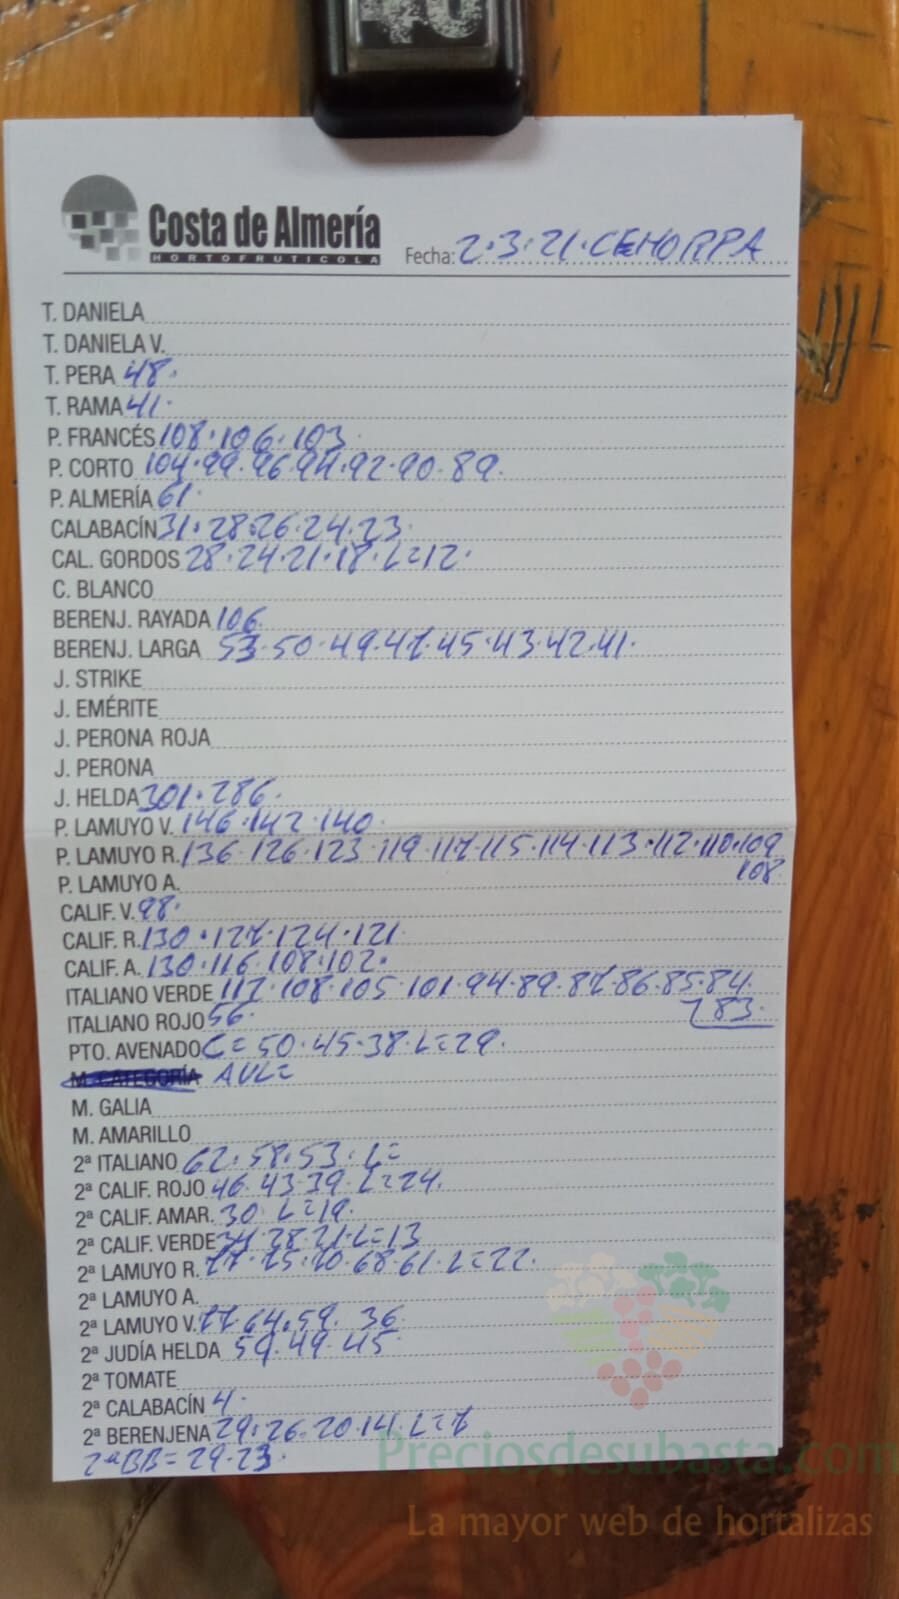 Costa de Almería
HORTOFRUTICOLA
Fecha: 2·3·21·CEHORPA
T. DANIELA
T. DANIELA V.
T. PERA 48·
T. RAMA 41·
P. FRANCÉS 108·106·103
P. CORTO 104·99·96·94·92·90·89·
P. ALMERÍA 61·
CALABACÍN 31·28·26·24·23
CAL. GORDOS 28·24·21·18·L=12·
C. BLANCO
BERENJ. RAYADA 106
BERENJ. LARGA 53·50·49·47·45·43·42·41·
J. STRIKE
J. EMÉRITE
J. PERONA ROJA
J. PERONA
J. HELDA 301·286·
P. LAMUYO V. 146·142·140
P. LAMUYO R. 136·126·123·119·117·115·114·113·112·110·109
108
P. LAMUYO A.
CALIF. V. 98·
CALIF. R. 130·127·124·121
CALIF. A. 130·116·108·102·
ITALIANO VERDE 117·108·105·101·94·89·87·86·85·84
83
ITALIANO ROJO 56·
PTO. AVENADO C=50·45·38·L=29·
M. CATEGORÍA AVL=
M. GALIA
M. AMARILLO
2ª ITALIANO 62·58·53·L=
2ª CALIF. ROJO 46·43·39·L=24·
2ª CALIF. AMAR. 30·L=19·
2ª CALIF. VERDE 34·28·21·L=13
2ª LAMUYO R. 77·75·70·68·61·L=22·
2ª LAMUYO A.
2ª LAMUYO V. 77·64·59· 36
2ª JUDÍA HELDA 59·49·45
2ª TOMATE
2ª CALABACÍN 4·
2ª BERENJENA 29·26·20·14·L=7
2ªBB=29·23·
Preciosdesubasta.com
La mayor web de hortalizas